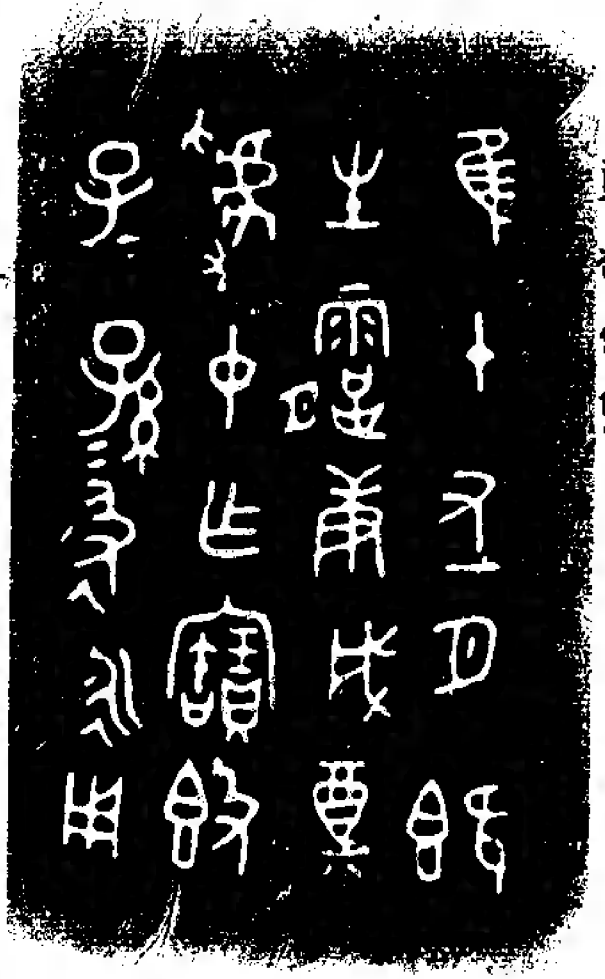 隹十又一月既
生霸庚戌奠
虢中乍寶𣪘
子=孫=彶永用